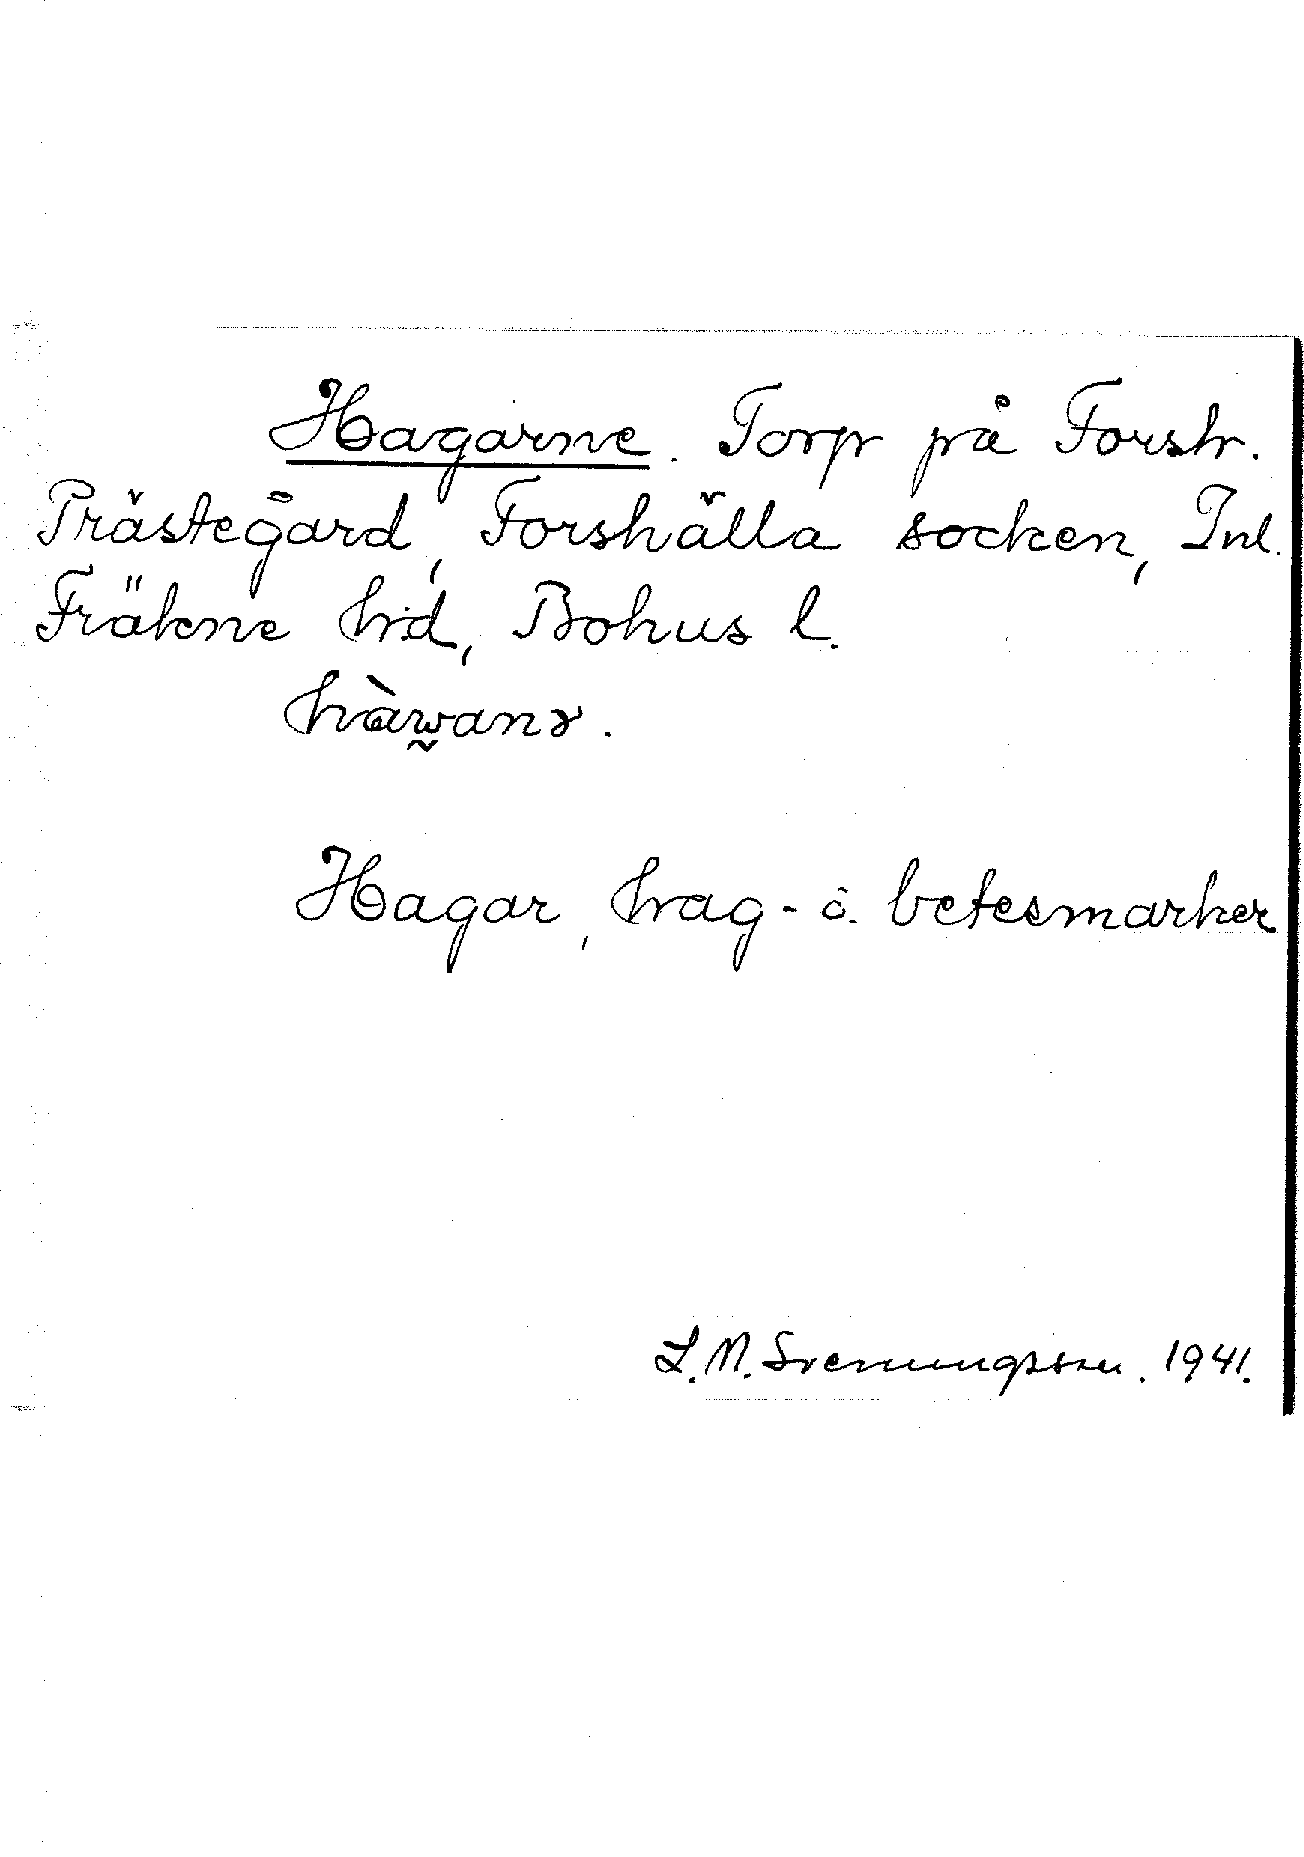 Hagarne. Torp på Forsh.
Prästegård, Forshälla socken, Inl.
Fräkne hd, Bohus l.
Hagar, hag- o. betesmarker
L. N. Svenungsson. 1941.